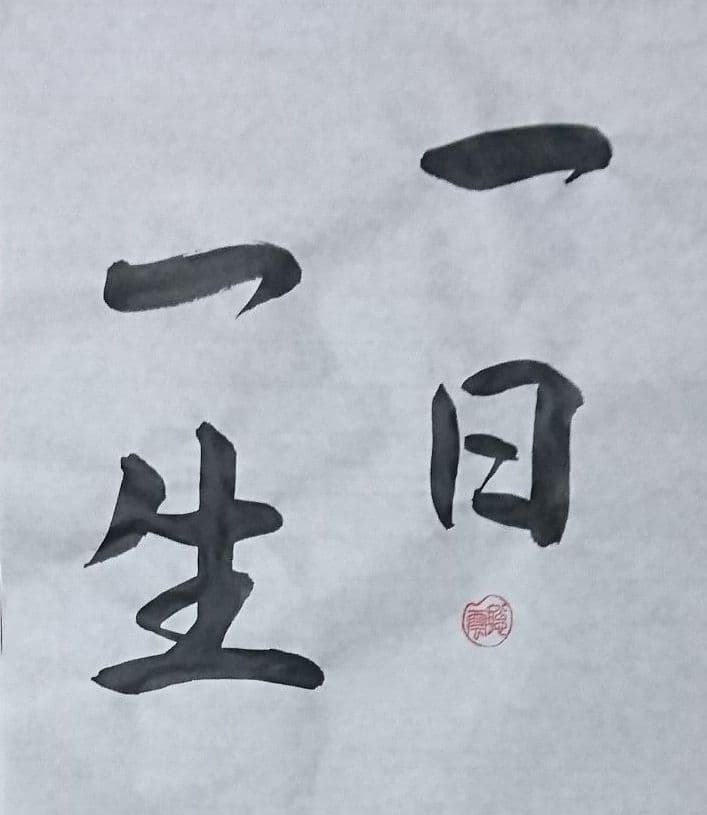 一日
一生